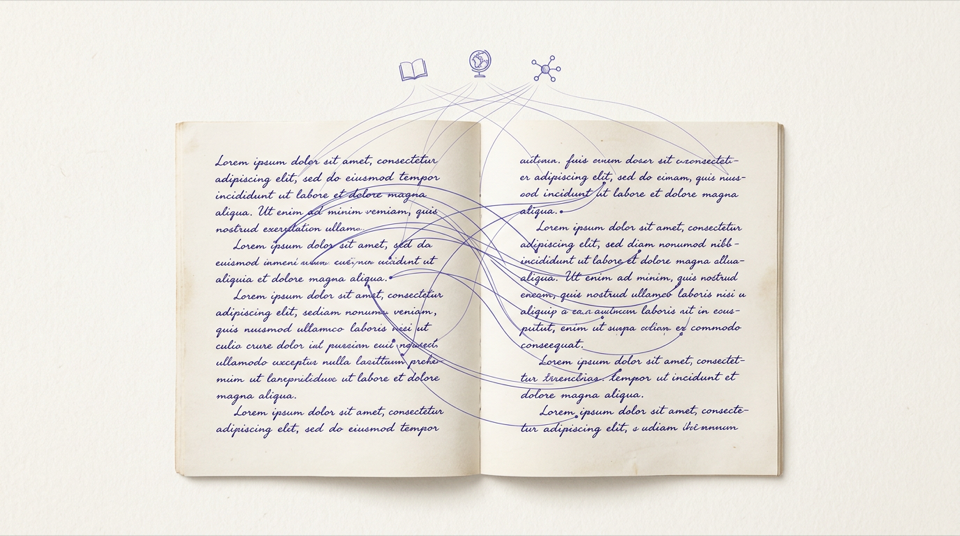 Lorem ipsum dolor sit amet, consectetur
adipiscing elit, sed do eiusmod tempor
incididunt ut labore et dolore magna
aliqua. Ut enim ad minim veniam, quis
nostrud
Lorem ipsum dolor sit amet, sed da
euismod
aliquia et dolore magna aliqua.
Lorem ipsum dolor sit amet, consectetur
adipiscing elit, sediam nonumy veniam,
quis nuismod ullamco laboris ut
culio crure dolor
ullamodo nulla
ut labore et dolore
magna aliqua.
Lorem ipsum dolor sit amet, consectetur
adipiscing elit, sed do eiusmod tempor
sit
er adipiscing elit, sed do quis nius-
ood incidunt ut labore et dolore magna
aliqua.
Lorem ipsum dolor sit amet, consectetur
adipiscing elit, sed diam nonumod nibb-
incididunt ut labore et dolore magna
aliqua. Ut enim ad minim, quis nostrud
quis nostrud ullamco laboris nisi u
aliquip a sit in
enim ut commodo
consequat.
Lorem ipsum dolor sit amet, consectet-
tur tempor ut incidunt et
dolore magna aliqua.
Lorem ipsum dolor sit amet, consecte-
tur adipiscing elit, s udiam